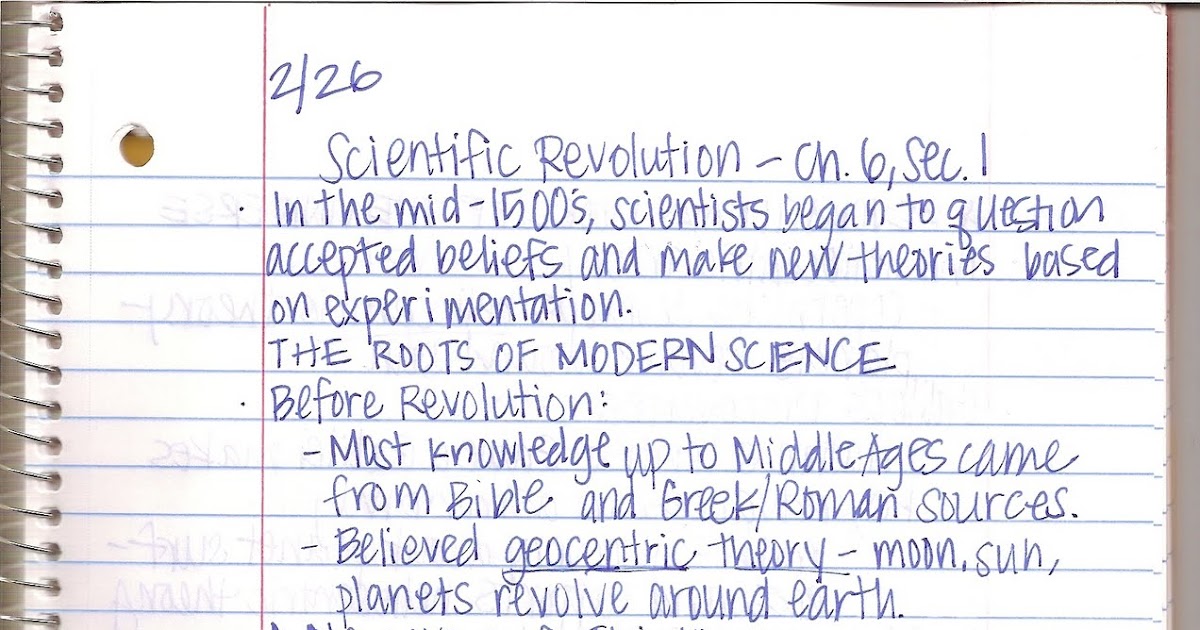 2/26
Scientific Revolution - Ch. 6, Sec. 1
· In the mid-1500's, scientists began to question
accepted beliefs and make new theories based
on experimentation.
THE ROOTS OF MODERN SCIENCE
· Before Revolution:
- Most knowledge up to Middle Ages came
from Bible and Greek/Roman sources.
- Believed geocentric theory - moon, sun,
planets revolve around earth.